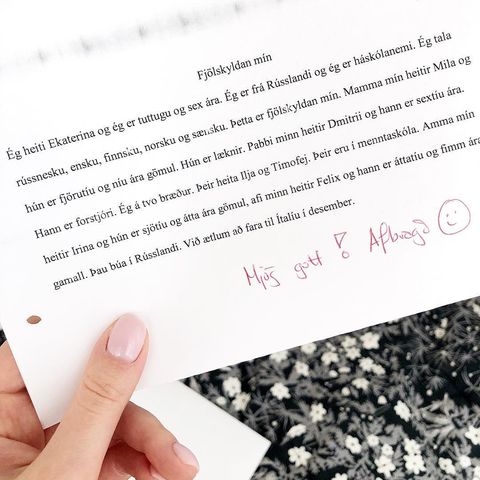 Fjölskyldan mín
Ég heiti Ekaterina og ég er tuttugu og sex ára. Ég er frá Rússlandi og ég er háskólanemi. Ég tala
rússnesku, ensku, finnsku, norsku og sænsku. Þetta er fjölskyldan mín. Mamma mín heitir Mila og
hún er fjörutíu og níu ára gömul. Hún er læknir. Pabbi minn heitir Dmitrii og hann er sextíu ára.
Hann er forstjóri. Ég á tvo bræður. Þeir heita Ilja og Timofej. Þeir eru í menntaskóla. Amma mín
heitir Irina og hún er sjötíu og átta ára gömul, afi minn heitir Felix og hann er áttatíu og fimm ára
gamall. Þau búa í Rússlandi. Við ætlum að fara til Ítalíu í desember.
Mjög gott! Afbragð